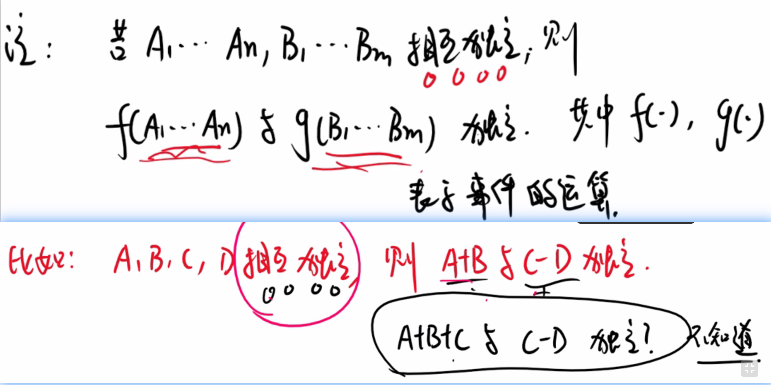 注： 若 A₁⋯An, B₁⋯Bm 相互独立, 则
f(A₁⋯An) 与 g(B₁⋯Bm) 独立. 其中 f(·), g(·)
表示事件的运算.
比如: A, B, C, D 相互独立, 则 A+B 与 C-D 独立.
A+B+C 与 C-D 独立? 不知道